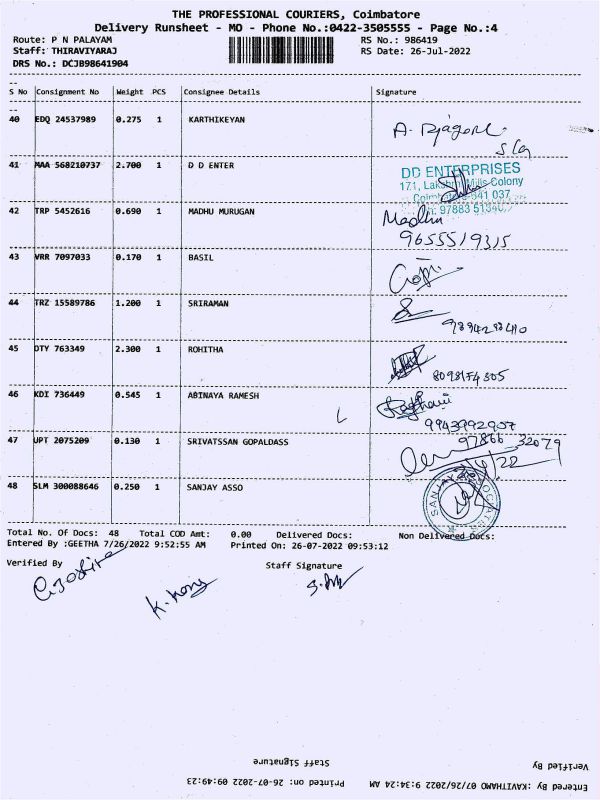 THE PROFESSIONAL COURIERS, Coimbatore
Delivery Runsheet - MO - Phone No.:0422-3505555 - Page No.:4
Route: P N PALAYAM RS No.: 986419
Staff: THIRAVIYARAJ RS Date: 26-Jul-2022
DRS No.: DCJB98641904
S No Consignment No Weight PCS Consignee Details Signature
40 EDQ 24537989 0.275 1 KARTHIKEYAN
41 MAA 568210737 2.700 1 D D ENTER
DD ENTERPRISES
171, Lakshmi Mills Colony
42 TRP 5452616 0.690 1 MADHU MURUGAN Madhu
9655519315
43 VRR 7097033 0.170 1 BASIL Gopi
44 TRZ 15589786 1.200 1 SRIRAMAN
45 DTY 763349 2.300 1 ROHITHA
46 KDI 736449 0.545 1 ABINAYA RAMESH
9943992907
47 UPT 2075209 0.130 1 SRIVATSSAN GOPALDASS 97866 32079
48 SLM 300088646 0.250 1 SANJAY ASSO
Total No. Of Docs: 48 Total COD Amt: 0.00 Delivered Docs: Non Delivered Docs:
Entered By :GEETHA 7/26/2022 9:52:55 AM Printed On: 26-07-2022 09:53:12
Verified By Staff Signature
Staff Signature Verified By
Printed on: 26-07-2022 09:49:23 Entered By :KAVITHAMO 07/26/2022 9:34:24 AM